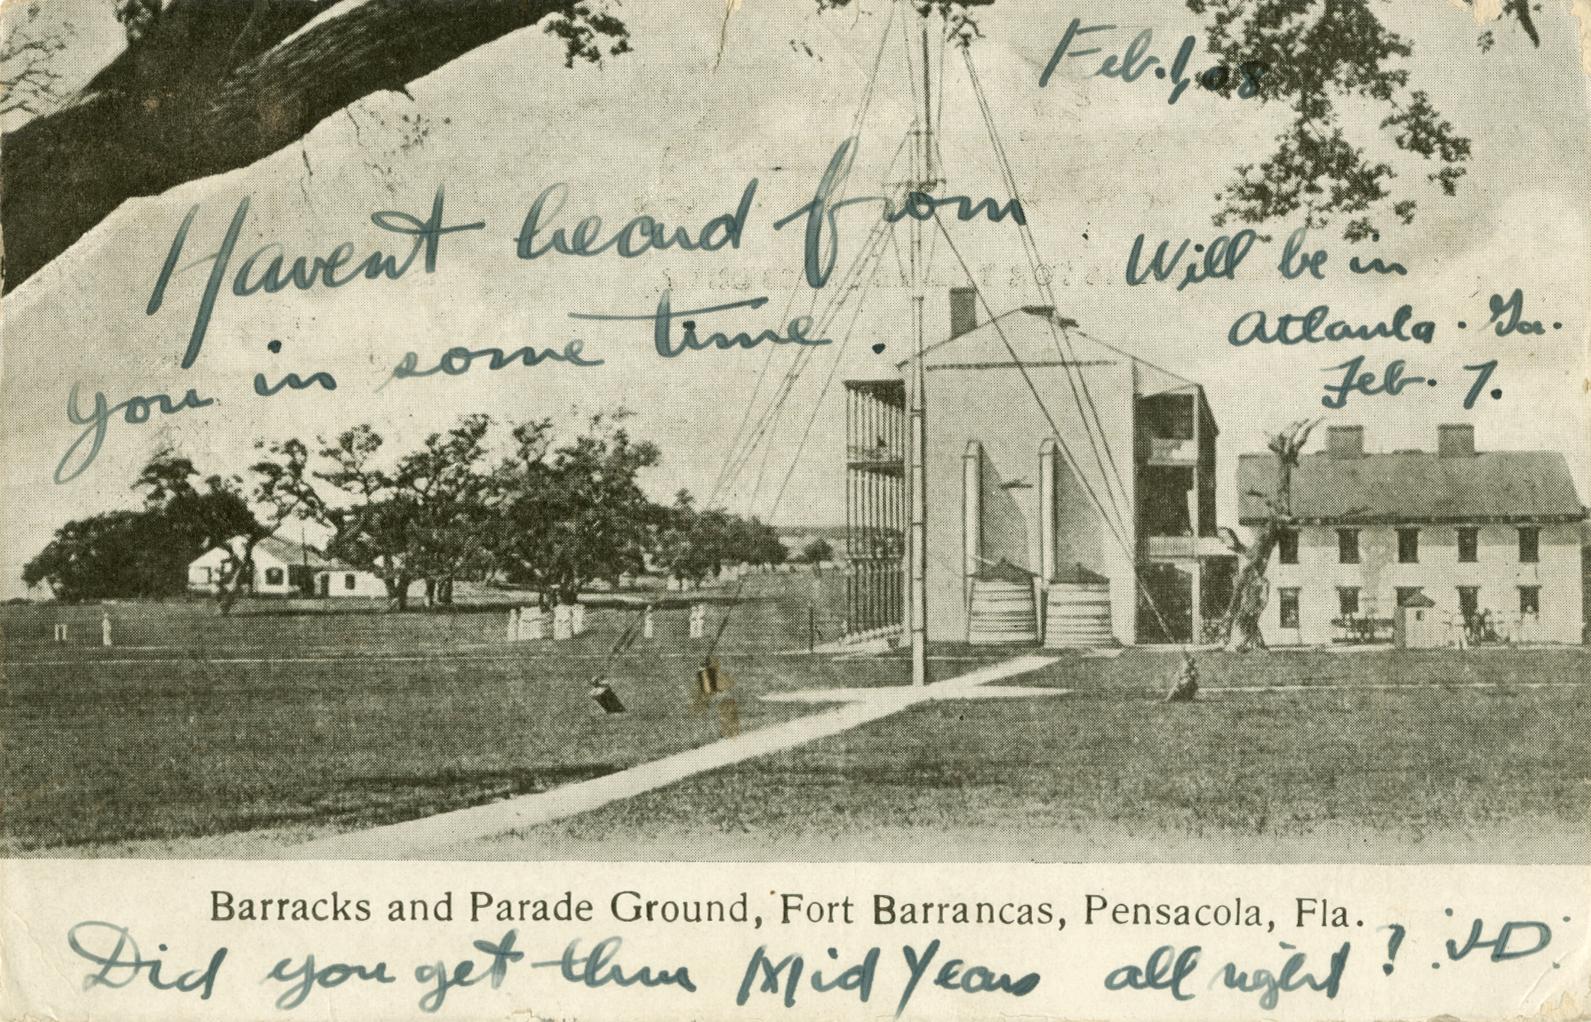 Feb. 1, 08
Havent heard from
you in some time.
Will be in
Atlanta. Ga.
Feb. 7.
Barracks and Parade Ground, Fort Barrancas, Pensacola, Fla.
Did you get thru Mid Years all right?